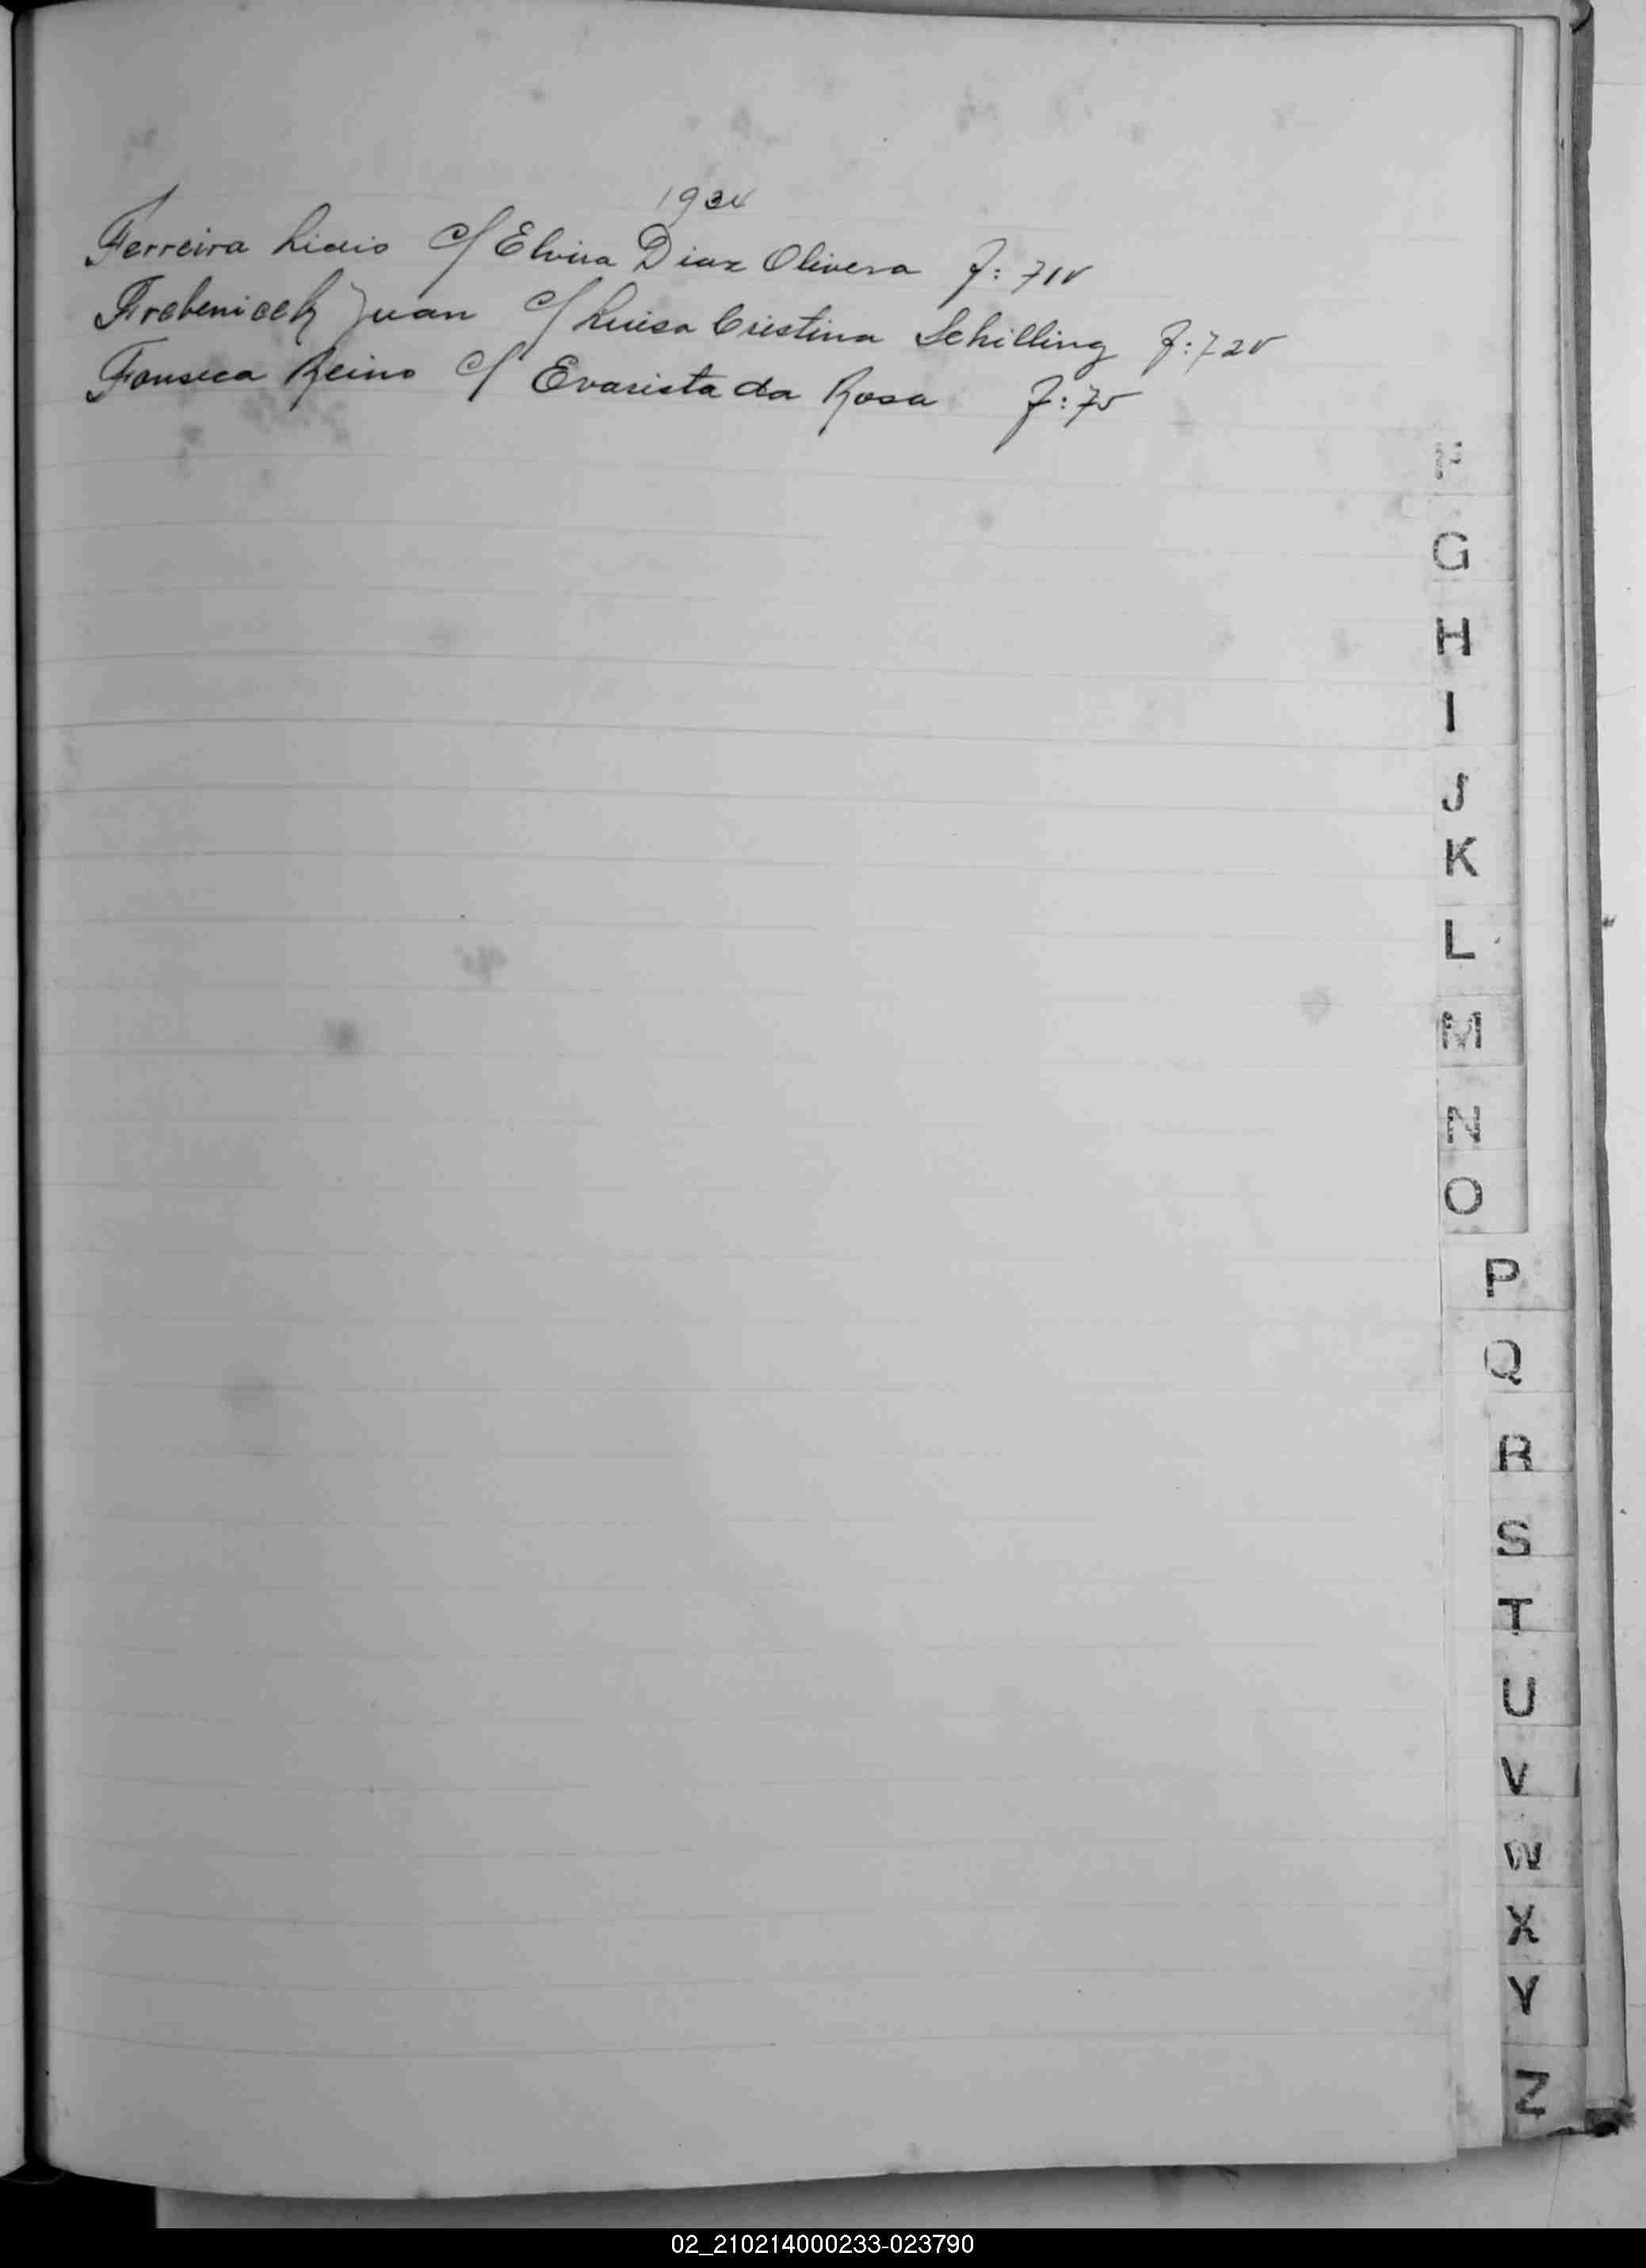 1934
Ferreira Lidio c/ Elvira Diaz Olivera F: 71v
Frebenicek Juan c/ Luisa Cristina Schilling F: 72v
Fonseca Reino c/ Evarista da Rosa F: 75
F
G
H
I
J
K
L
M
N
O
P
Q
R
S
T
U
V
W
X
Y
Z
02_210214000233-023790